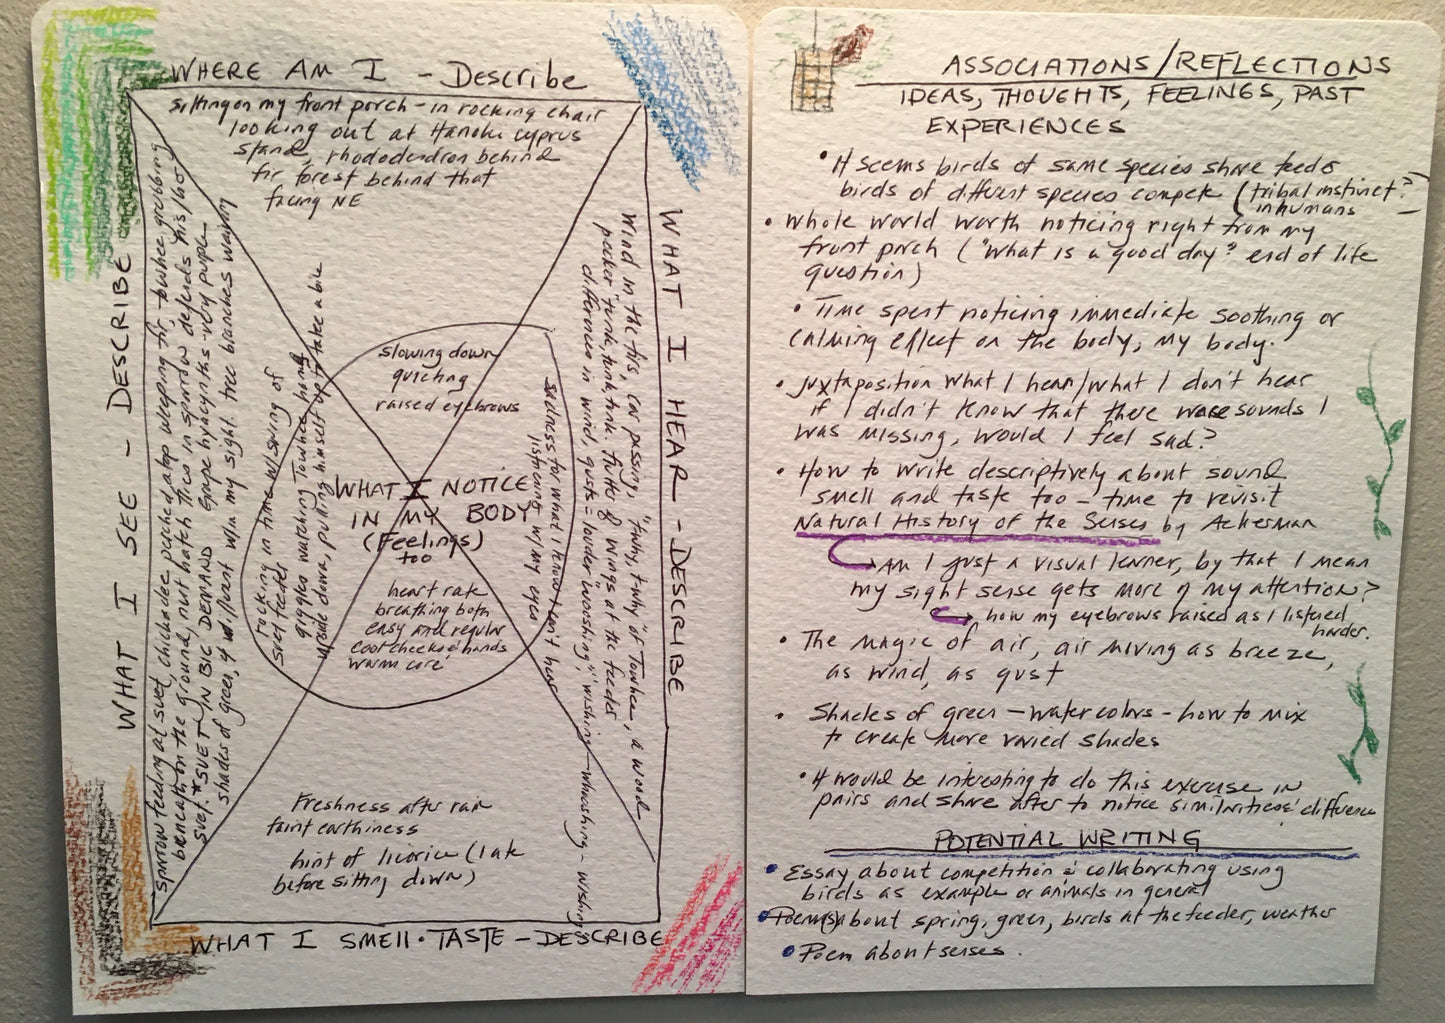 WHERE AM I - Describe
Sitting on my front porch - in rocking chair
looking out at Hanoki cyprus
stand, rhododendron behind
fir forest behind that
facing NE
WHAT I SEE - DESCRIBE
sparrow feeding at suet, chickadee perched atop weeping fir, towhee grubbing
beneath on the ground, nut hatch flies in sparrow defends his/her
svet. *SVET IN BIG DEMAND grape hyacynths - very purple
shades of green, 4 different w/in my sight. tree branches waving
WHAT I HEAR - DESCRIBE
Wind in the firs, car passing, "twhy, twhy" of Towhee, a wood
pecker "tunk, tunk, tunk. flutter of wings at the feeder
differences in wind, gusts = louder "wooshing," wishing - whooshing - wishing
WHAT I NOTICE
IN MY BODY
(Feelings)
too
slowing down
quieting
raised eyebrows
sadness for what I know I can't hear
listening w/my eyes
heart rate
breathing both
easy and regular
cool cheeks & hands
warm core
rocking in time w/swing of
suet feeder
giggles watching Towhee hang
upside down, pulling himself up to take a bite
Freshness after rain
faint earthiness
hint of licorice (I ate
before sitting down)
WHAT I SMELL · TASTE - DESCRIBE
ASSOCIATIONS/REFLECTIONS
IDEAS, THOUGHTS, FEELINGS, PAST
EXPERIENCES
• It seems birds of same species share feeders
birds of diffent species compete (tribal instinct?
in humans)
• Whole world worth noticing right from my
front porch ("What is a good day"? end of life
question)
• Time spent noticing immediate soothing or
calming effect on the body, my body.
• Juxtaposition what I hear/what I don't hear
if I didn't know that there were sounds I
was missing, would I feel sad?
• How to write descriptively about sound
smell and taste too - time to revisit
Natural History of the Senses by Ackerman
Am I just a visual learner, by that I mean
my sight sense gets more of my attention?
how my eyebrows raised as I listened
harder.
• The magic of air, air moving as breeze,
as wind, as gust
• Shades of green - watercolors - how to mix
to create more varied shades
• It would be interesting to do this exercise in
pairs and share after to notice similarities & difference
POTENTIAL WRITING
• Essay about competition & collaborating using
birds as example or animals in general
• Poem(s) about spring, green, birds at the feeder, weather
• Poem about senses.